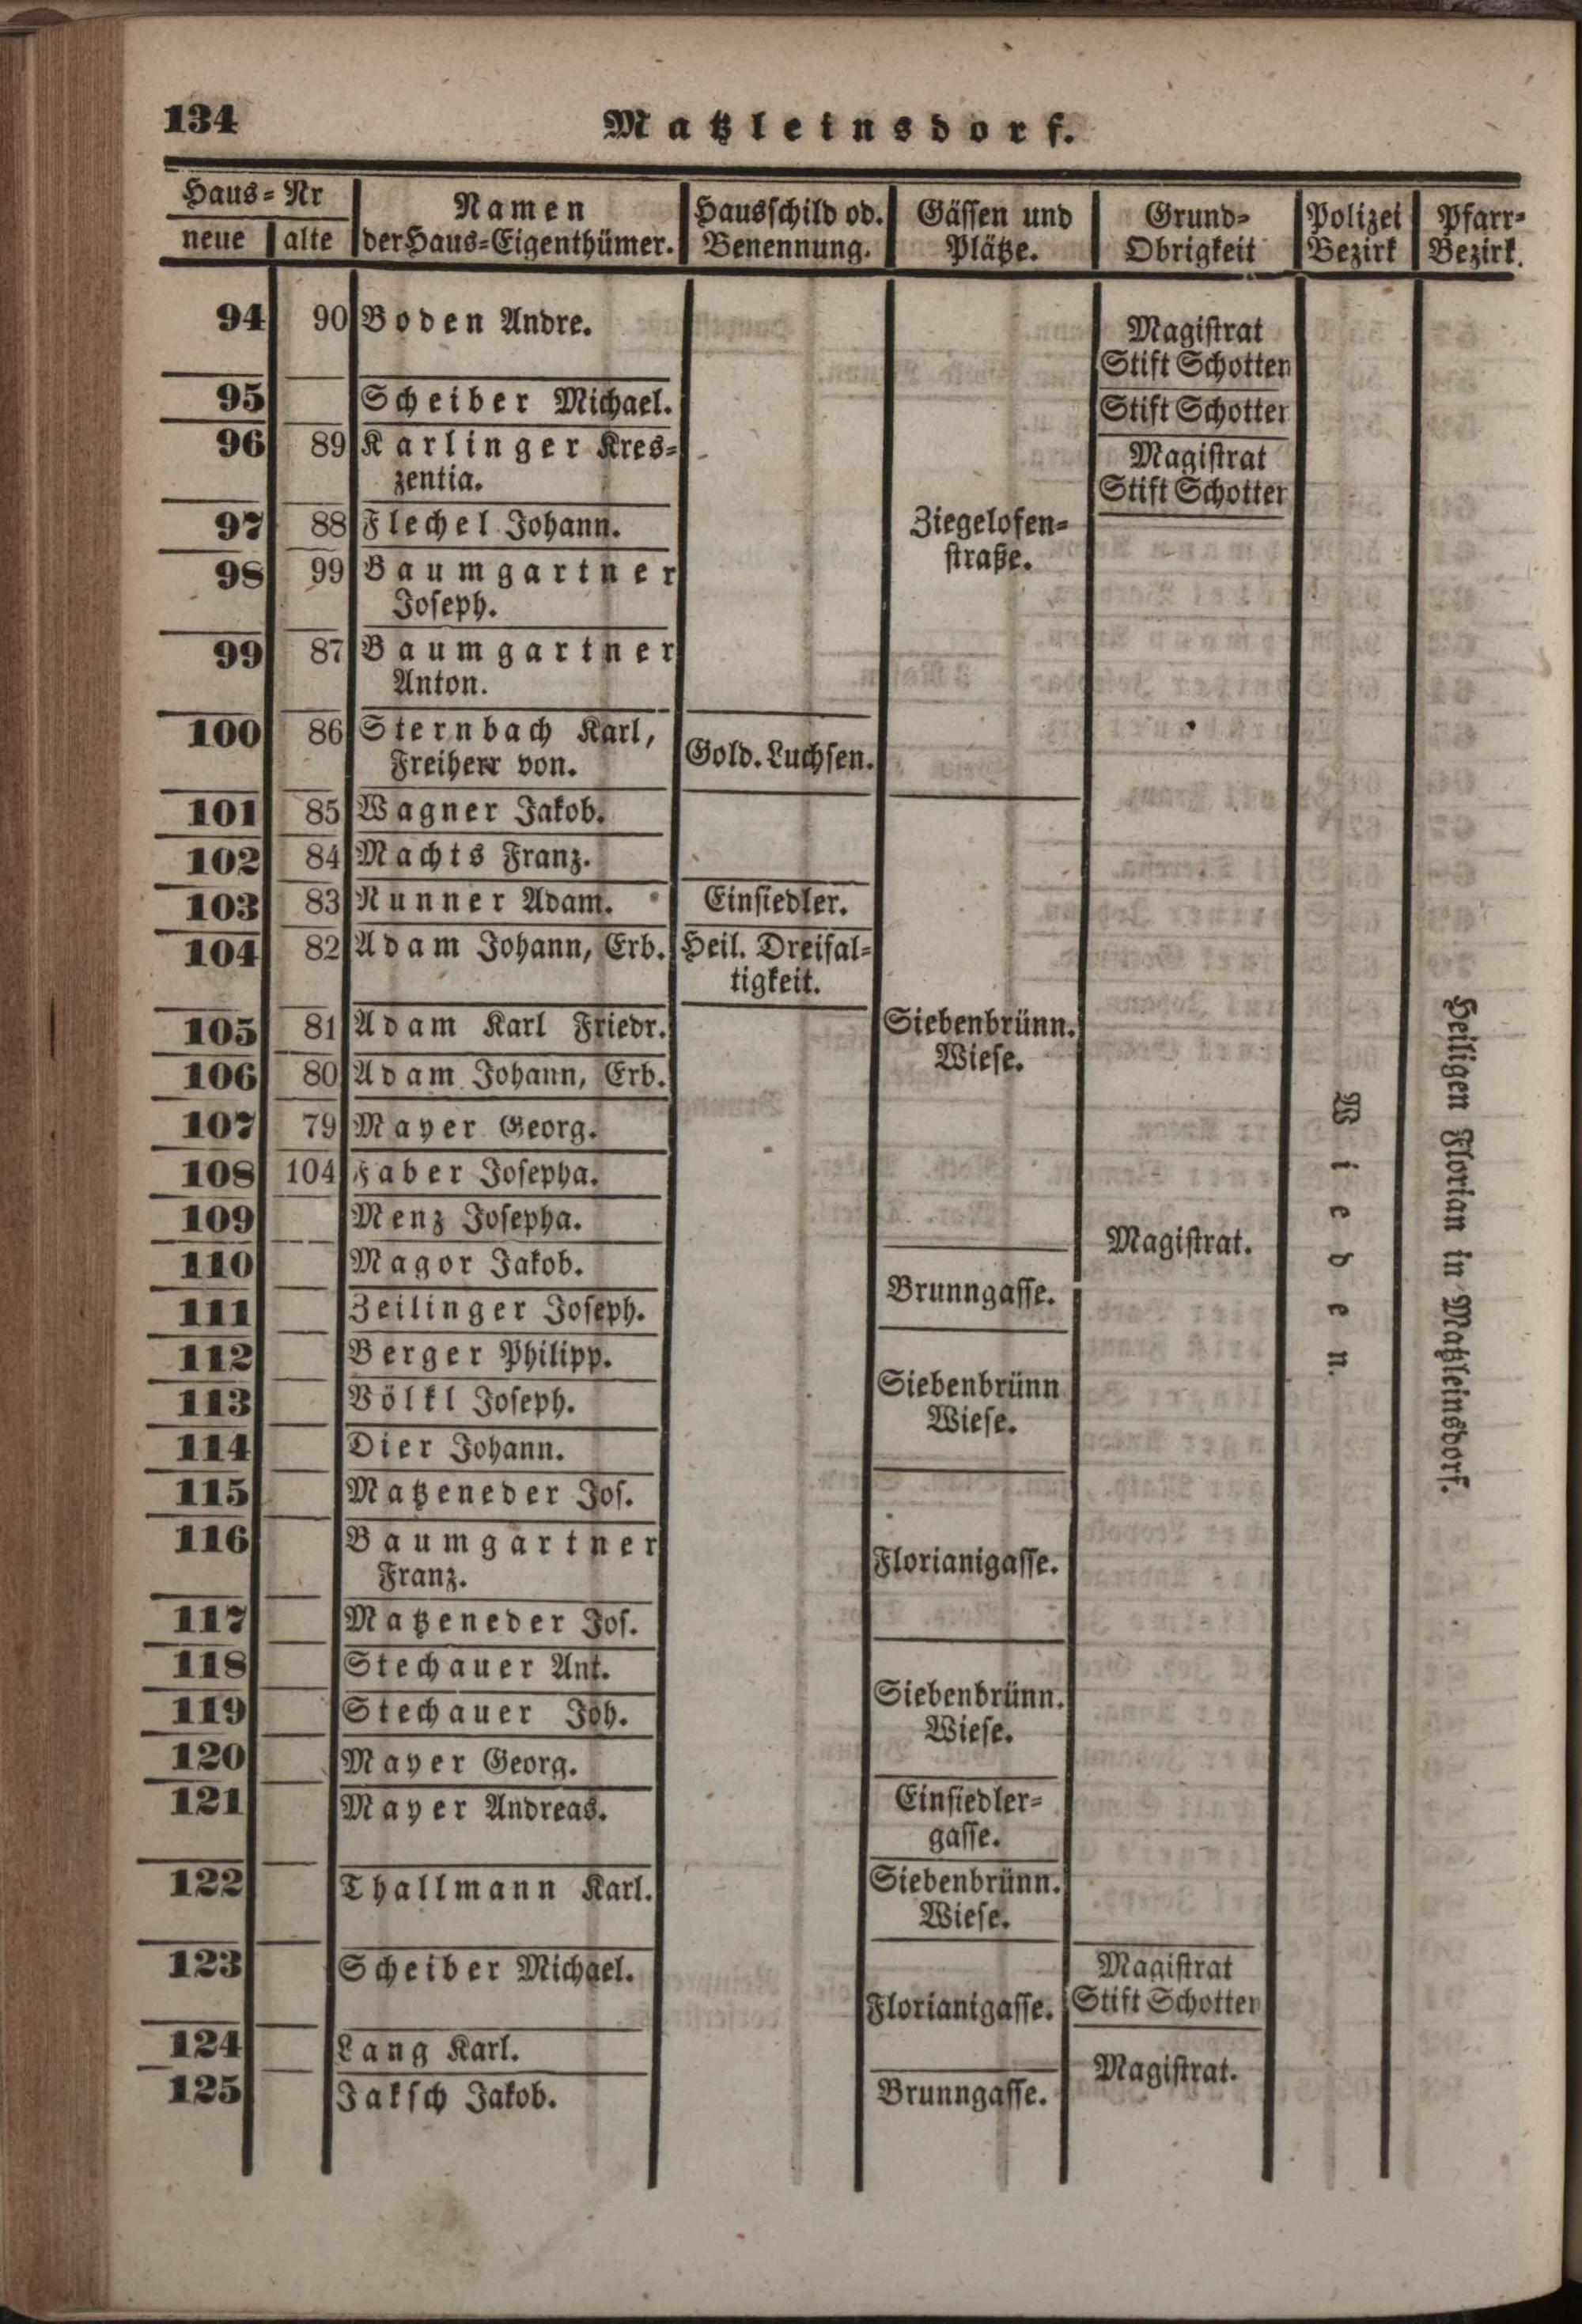 134
Matzleinsdorf.
Haus-Nr
neue alte
Namen
der Haus-Eigenthümer.
Hausschild od.
Benennung.
Gässen und
Plätze.
Grund-
Obrigkeit
Polizei
Bezirk
Pfarr-
Bezirk.
94 90 Boden Andre.
Magistrat
Stift Schotten
95 Scheiber Michael.
Stift Schotter
96 89 Karlinger Kres-
zentia.
Magistrat
Stift Schotter
97 88 Flechel Johann.
Ziegelofen-
straße.
98 99 Baumgartner
Joseph.
99 87 Baumgartner
Anton.
100 86 Sternbach Karl,
Freiherr von.
Gold. Luchsen.
101 85 Wagner Jakob.
102 84 Machts Franz.
103 83 Nunner Adam. Einsiedler.
104 82 Adam Johann, Erb. Heil. Dreifal-
tigkeit.
105 81 Adam Karl Friedr.
Siebenbrünn.
Wiese.
106 80 Adam Johann, Erb.
107 79 Mayer Georg.
108 104 Faber Josepha.
109 Menz Josepha.
Magistrat.
110 Magor Jakob.
Brunngasse.
111 Zeilinger Joseph.
112 Berger Philipp.
Siebenbrünn
Wiese.
113 Völkl Joseph.
114 Dier Johann.
115 Matzeneder Jos.
116 Baumgartner
Franz.
Florianigasse.
117 Matzeneder Jos.
118 Stechauer Ant.
Siebenbrünn.
Wiese.
119 Stechauer Joh.
120 Mayer Georg.
121 Mayer Andreas.
Einsiedler-
gasse.
122 Thallmann Karl.
Siebenbrünn.
Wiese.
123 Scheiber Michael.
Magistrat
Stift Schotten
Florianigasse.
124 Lang Karl.
Magistrat.
125 Jaksch Jakob. Brunngasse.
Wieden.
Heiligen Florian in Matzleinsdorf.